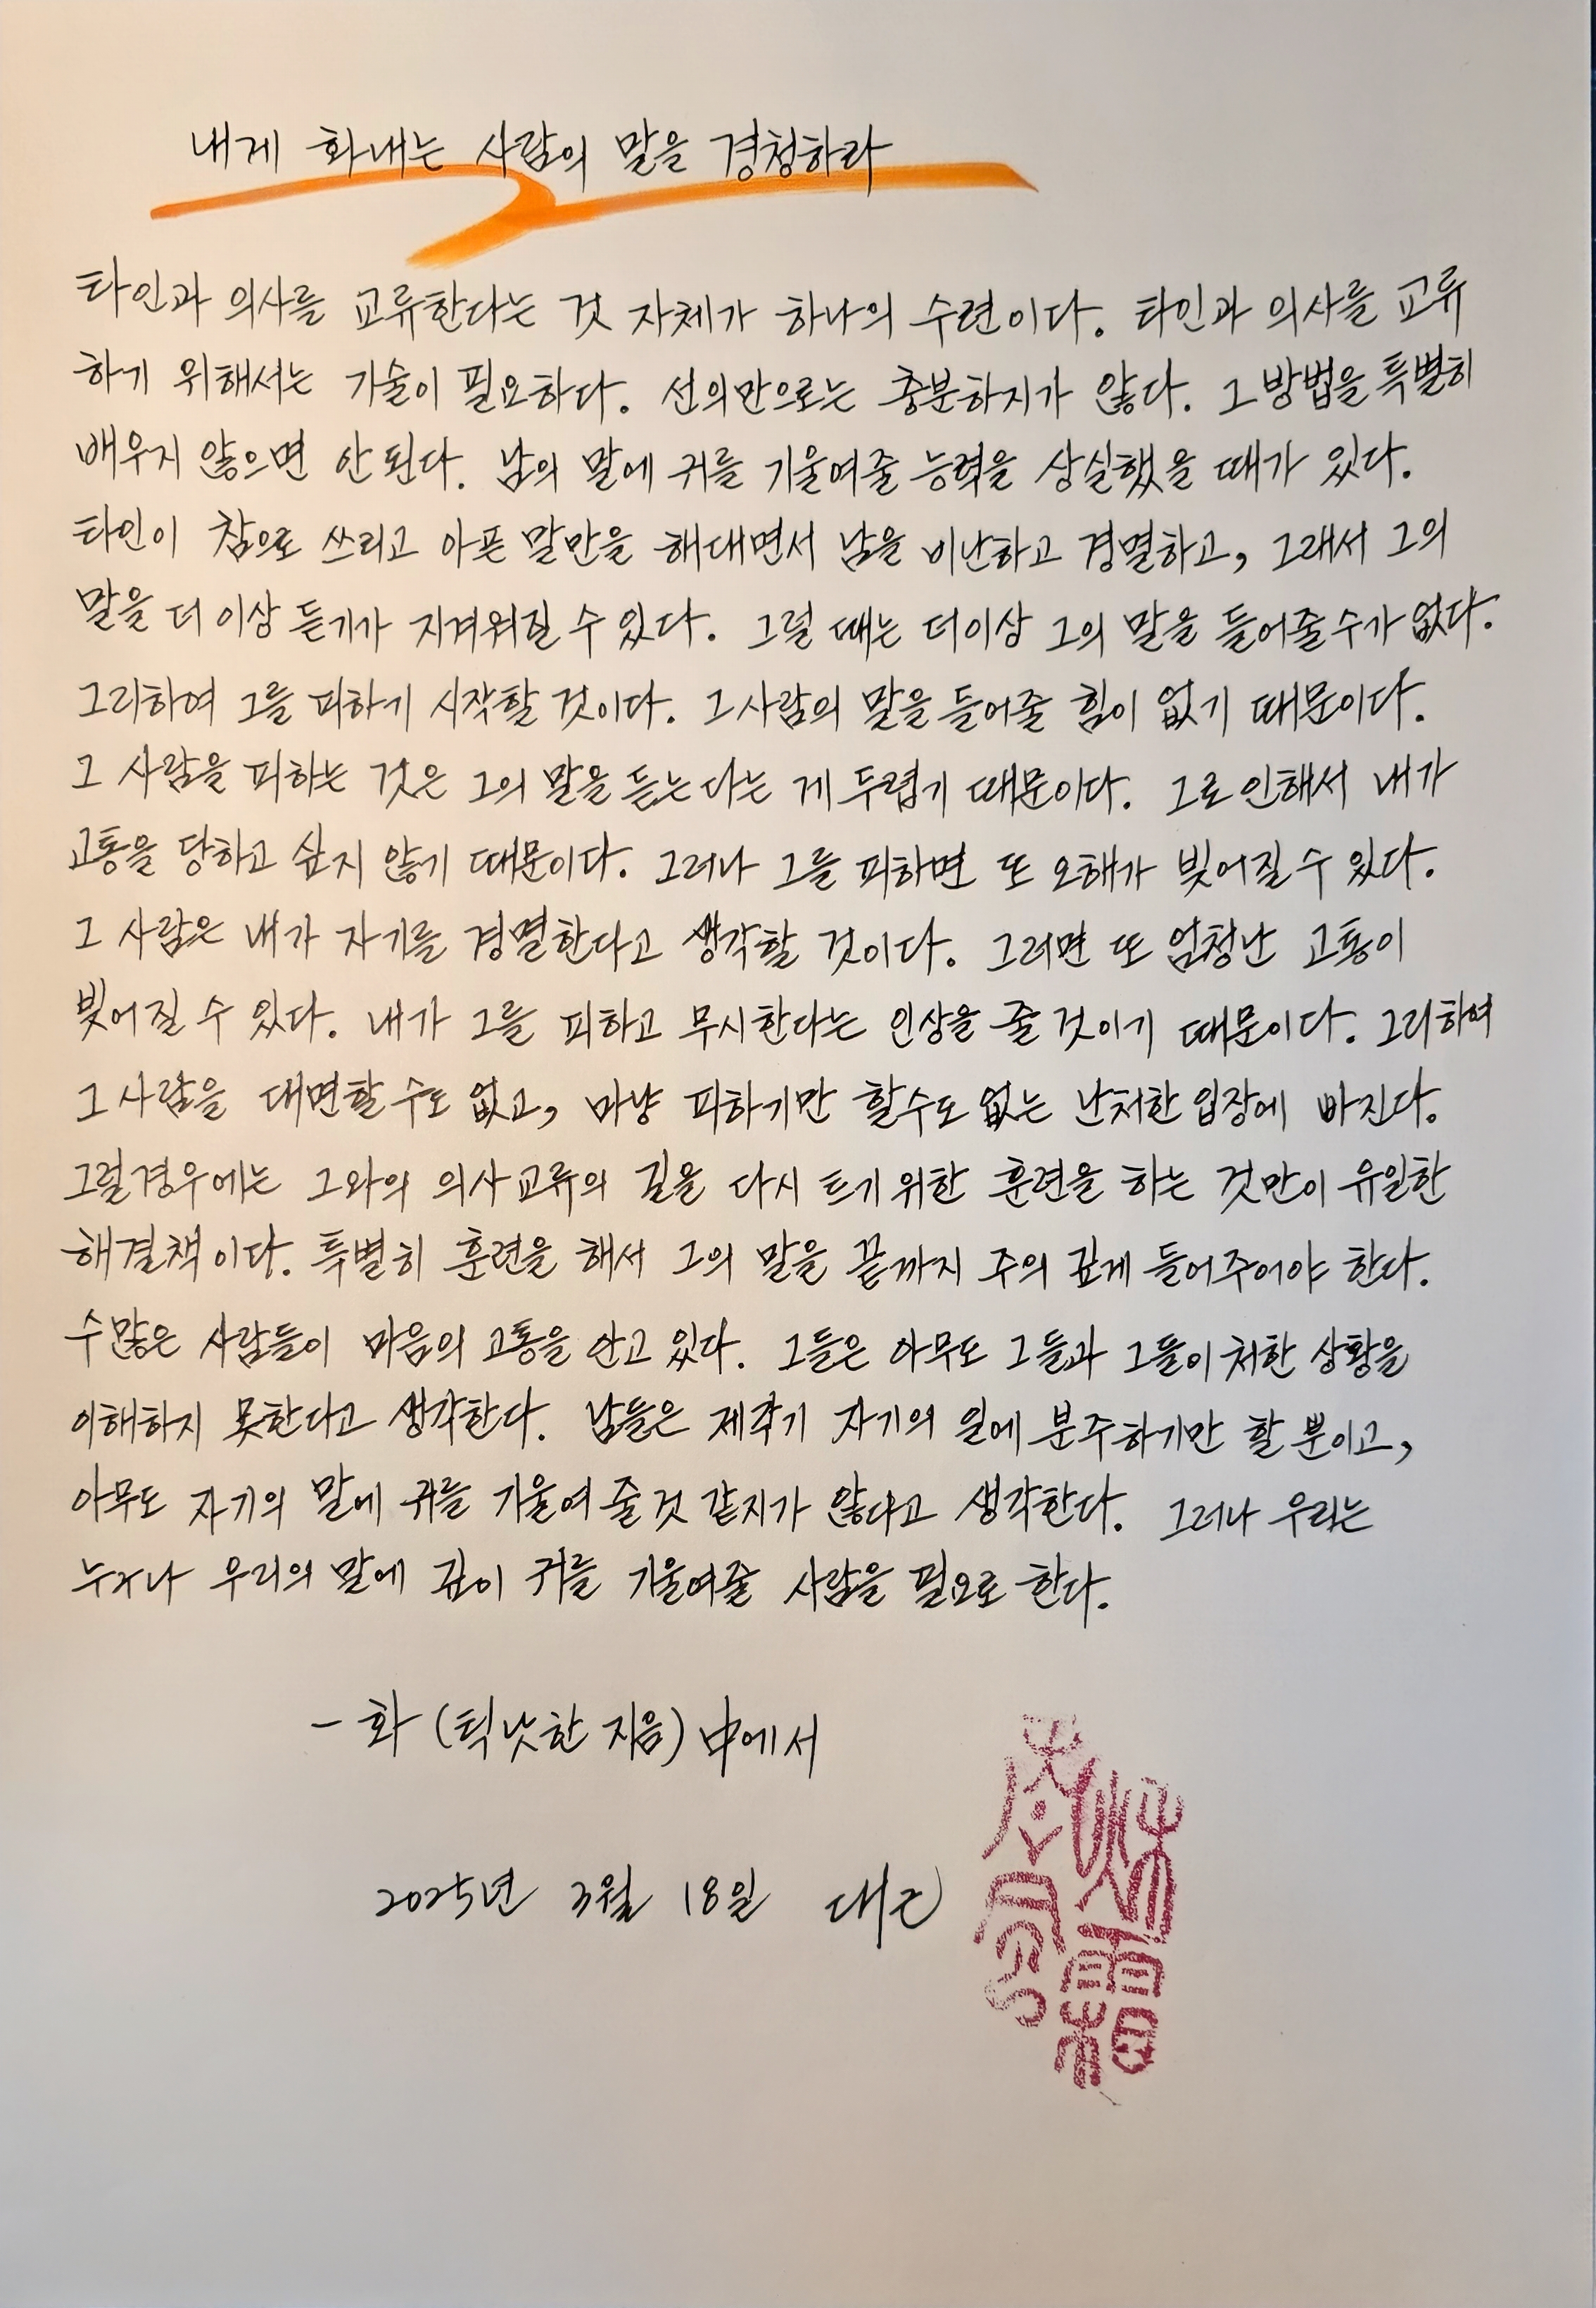 내게 화내는 사람의 말을 경청하라
타인과 의사를 교류한다는 것 자체가 하나의 수련이다. 타인과 의사를 교류
하기 위해서는 기술이 필요하다. 선의만으로는 충분하지가 않다. 그 방법을 특별히
배우지 않으면 안 된다. 남의 말에 귀를 기울여줄 능력을 상실했을 때가 있다.
타인이 참으로 쓰리고 아픈 말만을 해대면서 남을 비난하고 경멸하고, 그래서 그의
말을 더 이상 듣기가 지겨워질 수 있다. 그럴 때는 더이상 그의 말을 들어줄수가 없다.
그리하여 그를 피하기 시작할 것이다. 그 사람의 말을 들어줄 힘이 없기 때문이다.
그 사람을 피하는 것은 그의 말을 듣는다는 게 두렵기 때문이다. 그로 인해서 내가
고통을 당하고 싶지 않기 때문이다. 그러나 그를 피하면 또 오해가 빚어질 수 있다.
그 사람은 내가 자기를 경멸한다고 생각할 것이다. 그러면 또 엄청난 고통이
빚어질 수 있다. 내가 그를 피하고 무시한다는 인상을 줄 것이기 때문이다. 그리하여
그 사람을 대면할 수도 없고, 마냥 피하기만 할수도 없는 난처한 입장에 빠진다.
그럴경우에는 그와의 의사교류의 길을 다시 트기 위한 훈련을 하는 것만이 유일한
해결책이다. 특별히 훈련을 해서 그의 말을 끝까지 주의 깊게 들어주어야 한다.
수많은 사람들이 마음의 고통을 안고 있다. 그들은 아무도 그들과 그들이 처한 상황을
이해하지 못한다고 생각한다. 남들은 제각기 자기의 일에 분주하기만 할 뿐이고,
아무도 자기의 말에 귀를 기울여 줄 것 같지가 않다고 생각한다. 그러나 우리는
누구나 우리의 말에 깊이 귀를 기울여줄 사람을 필요로 한다.
- 화 (틱낫한 지음) 中에서
2025년 3월 18일